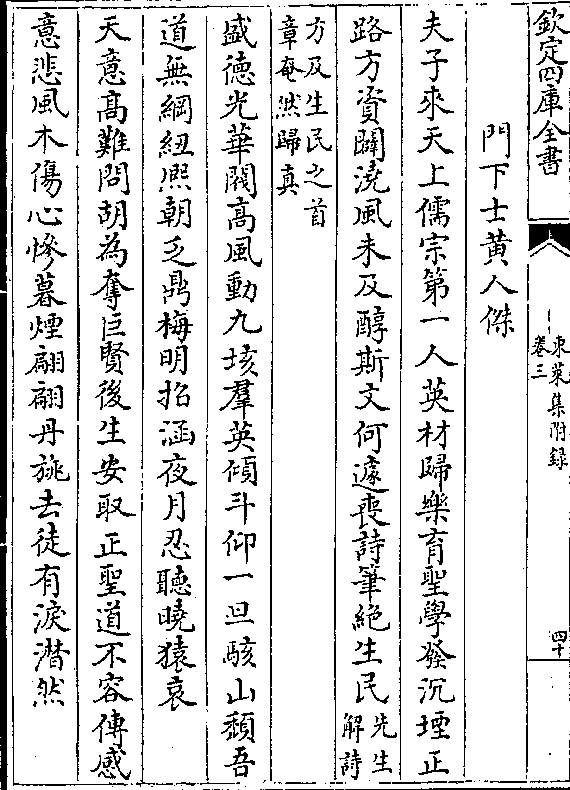 欽定四庫全書
東萊集附録
卷三
四十
門下士黄人傑
夫子來天上儒宗第一人英材歸樂育聖學發沉堙正
路方資闢澆風未及醇斯文何遽喪詩筆絶生民先生
解詩
方及生民之首
章奄然歸真
盛德光華閥高風動九垓羣英傾斗仰一旦駭山頽吾
道無綱紐熈朝乏鼎梅明招涵夜月忍聽曉猿哀
天意髙難問胡為奪巨賢後生安取正聖道不容傳感
意悲風木傷心慘暮煙翩翩丹旐去徒有淚潸然